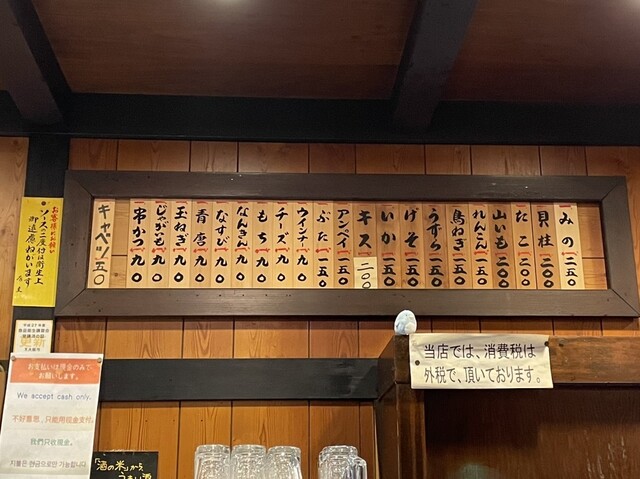 みの 二五〇
貝柱 二〇〇
たこ 二〇〇
山いも 二〇〇
れんこん 一五〇
鳥ねぎ 一五〇
うずら 一五〇
げそ 一五〇
いか 一五〇
キス 二〇〇
アンペイ 一五〇
ぶた 一五〇
ウインナー 九〇
チーズ 九〇
もち 九〇
なんきん 九〇
なすび 九〇
青唐 九〇
玉ねぎ 九〇
じゃがいも 九〇
串かつ 九〇
キャベツ 五〇
お客様にお願い
●ソース二度付は衛生上
御遠慮ねがいます
店主
平成27年
当店では、消費税は
外税で、頂いております。
お支払いは現金のみで
お願いします。
We accept cash only.
不好意思，只能用现金支付.
我們只收現金。
지불은 현금으로만 가능합니다
「酒の米」から
うまい酒